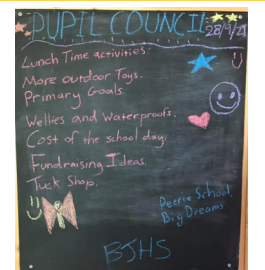 PUPIL COUNCIL 28/9/21
Lunch Time activities.
More outdoor Toys.
Primary Goals.
Wellies and Waterproofs.
Cost of the school day.
Fundraising Ideas.
Tuck Shop.
Peerie School,
Big Dreams
BJHS